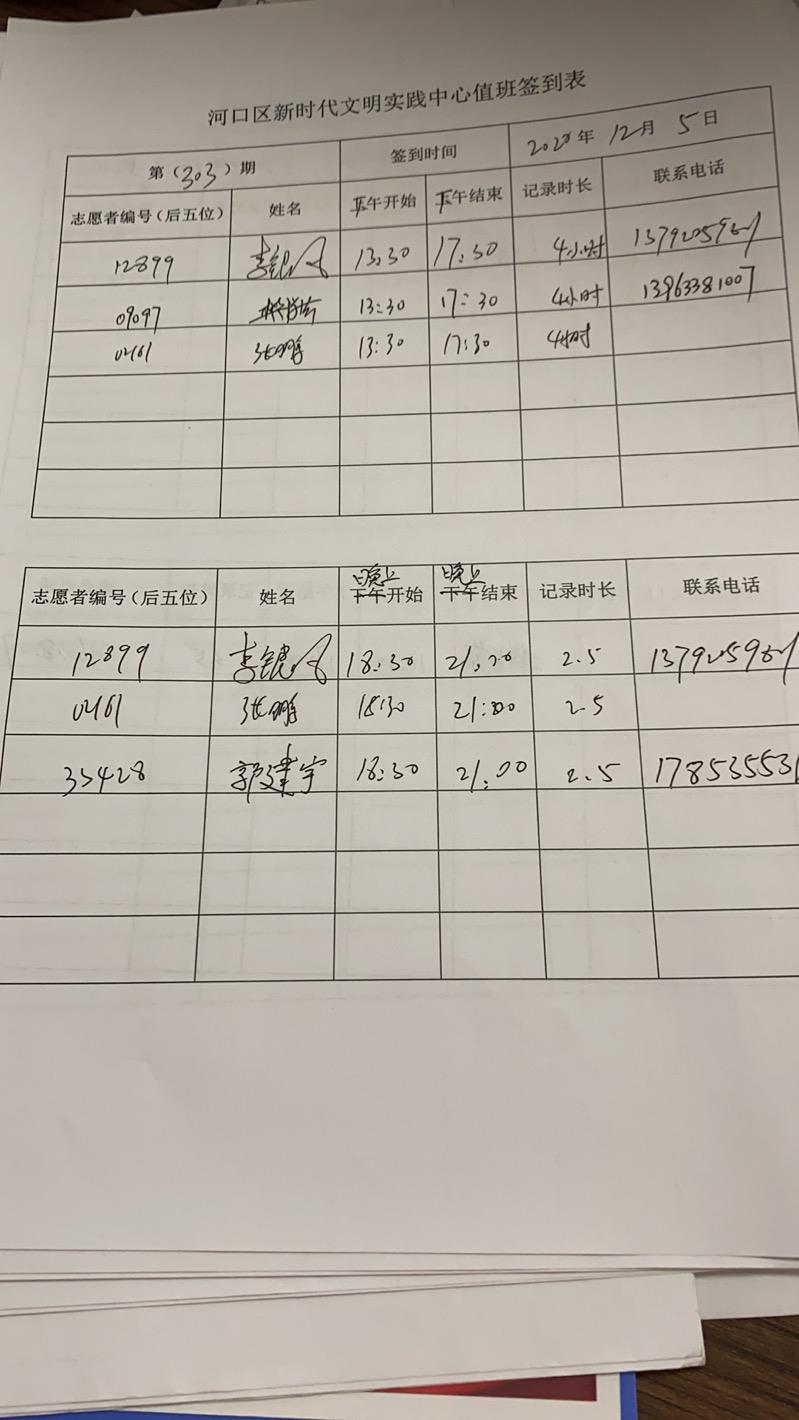 河口区新时代文明实践中心值班签到表
第（303）期 签到时间 2020年 12月 5日
志愿者编号（后五位） 姓名 下午开始 下午结束 记录时长 联系电话
12899 李银 13:30 17:30 4小时
09097 13:30 17:30 4小时 13963381007
张鹏 13:30 17:30 4小时
晚上 晚上
志愿者编号（后五位） 姓名 下午开始 下午结束 记录时长 联系电话
12899 李银 18:30 21:00 2.5
张鹏 18:30 21:00 2.5
33428 郭建宇 18:30 21:00 2.5 178535531